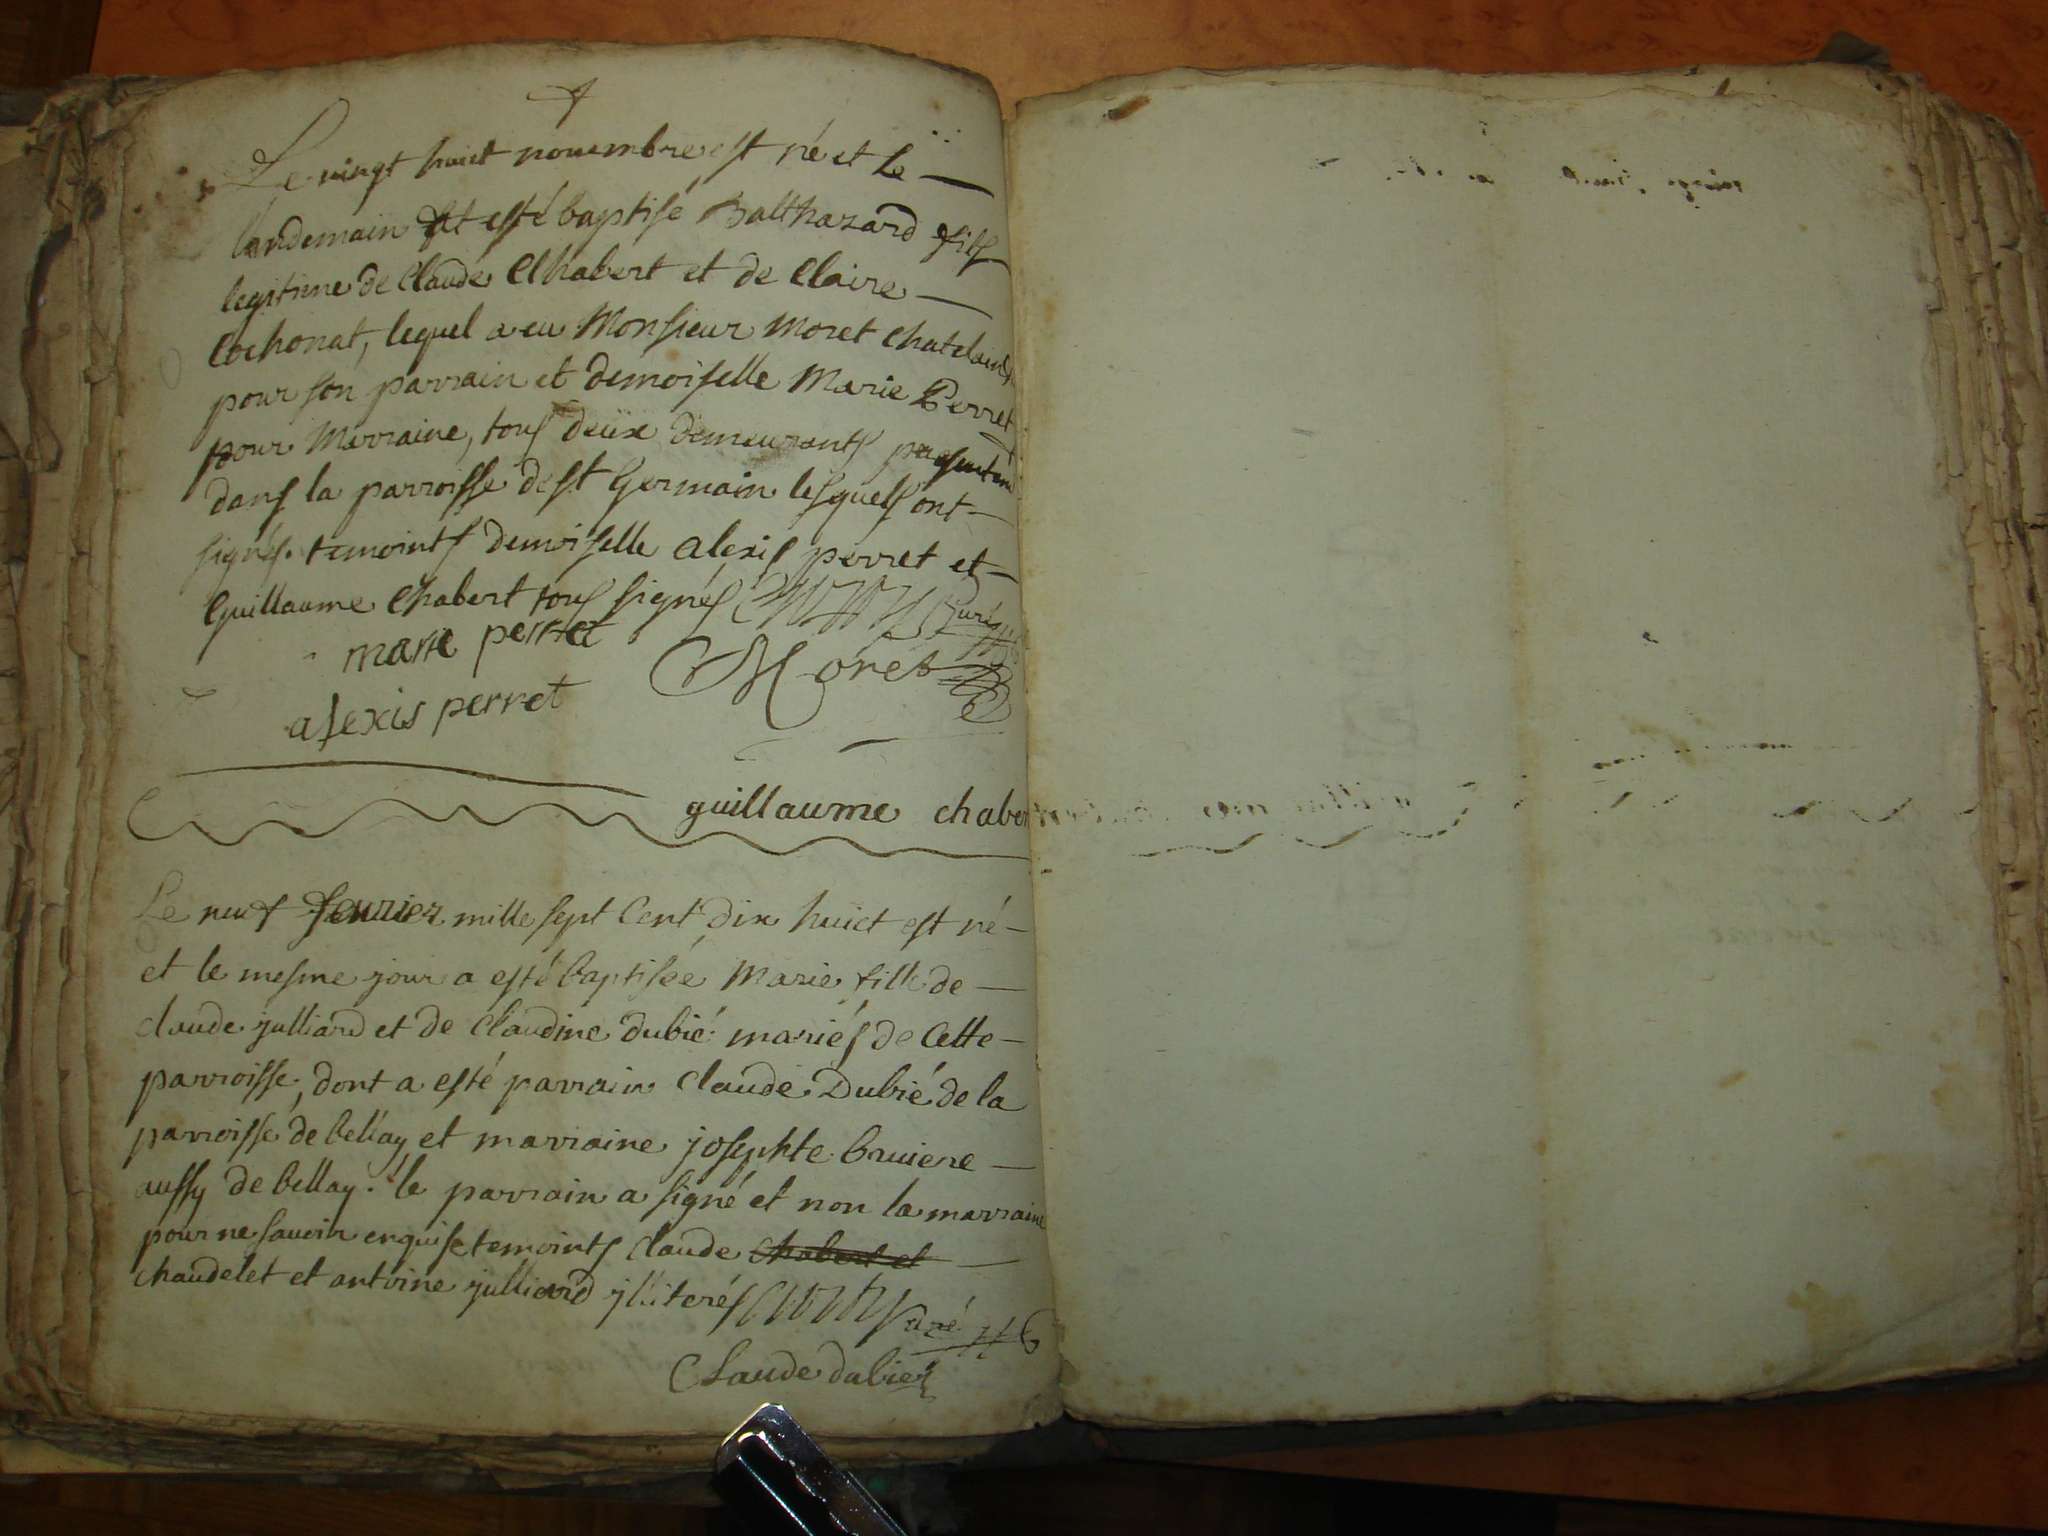 Le vingt huict novembre est né et le
landemain at esté baptisé Balthazard fils
legitime de Claude Chabert et de Claire
Cochonat, lequel a eu Monsieur Moret Chatelain
pour son parrain et demoiselle Marie Perret
pour Marraine, tous deüx demeurants
dans la parroisse de St Germain lesquels ont
signés. temoints demoiselle alexis perret et
Guillaume Chabert tous signés Curé
marie perret
Moret
alexis perret
guillaume chabert
Le neuf fevrier mille sept Cent dix huict est né
et le mesme jour a esté baptisée Marie fille de
claude julliard et de Claudine dubié mariés de Cette
parroisse, dont a esté parrain claude Dubié de la
parroisse de bellay et marraine josephte bruiere
aussy de bellay. le parrain a signé et non la marraine
pour ne savoir enquise temoints claude chabert et
chaudelet et antoine julliard jlliterés Curé
Claude dubier